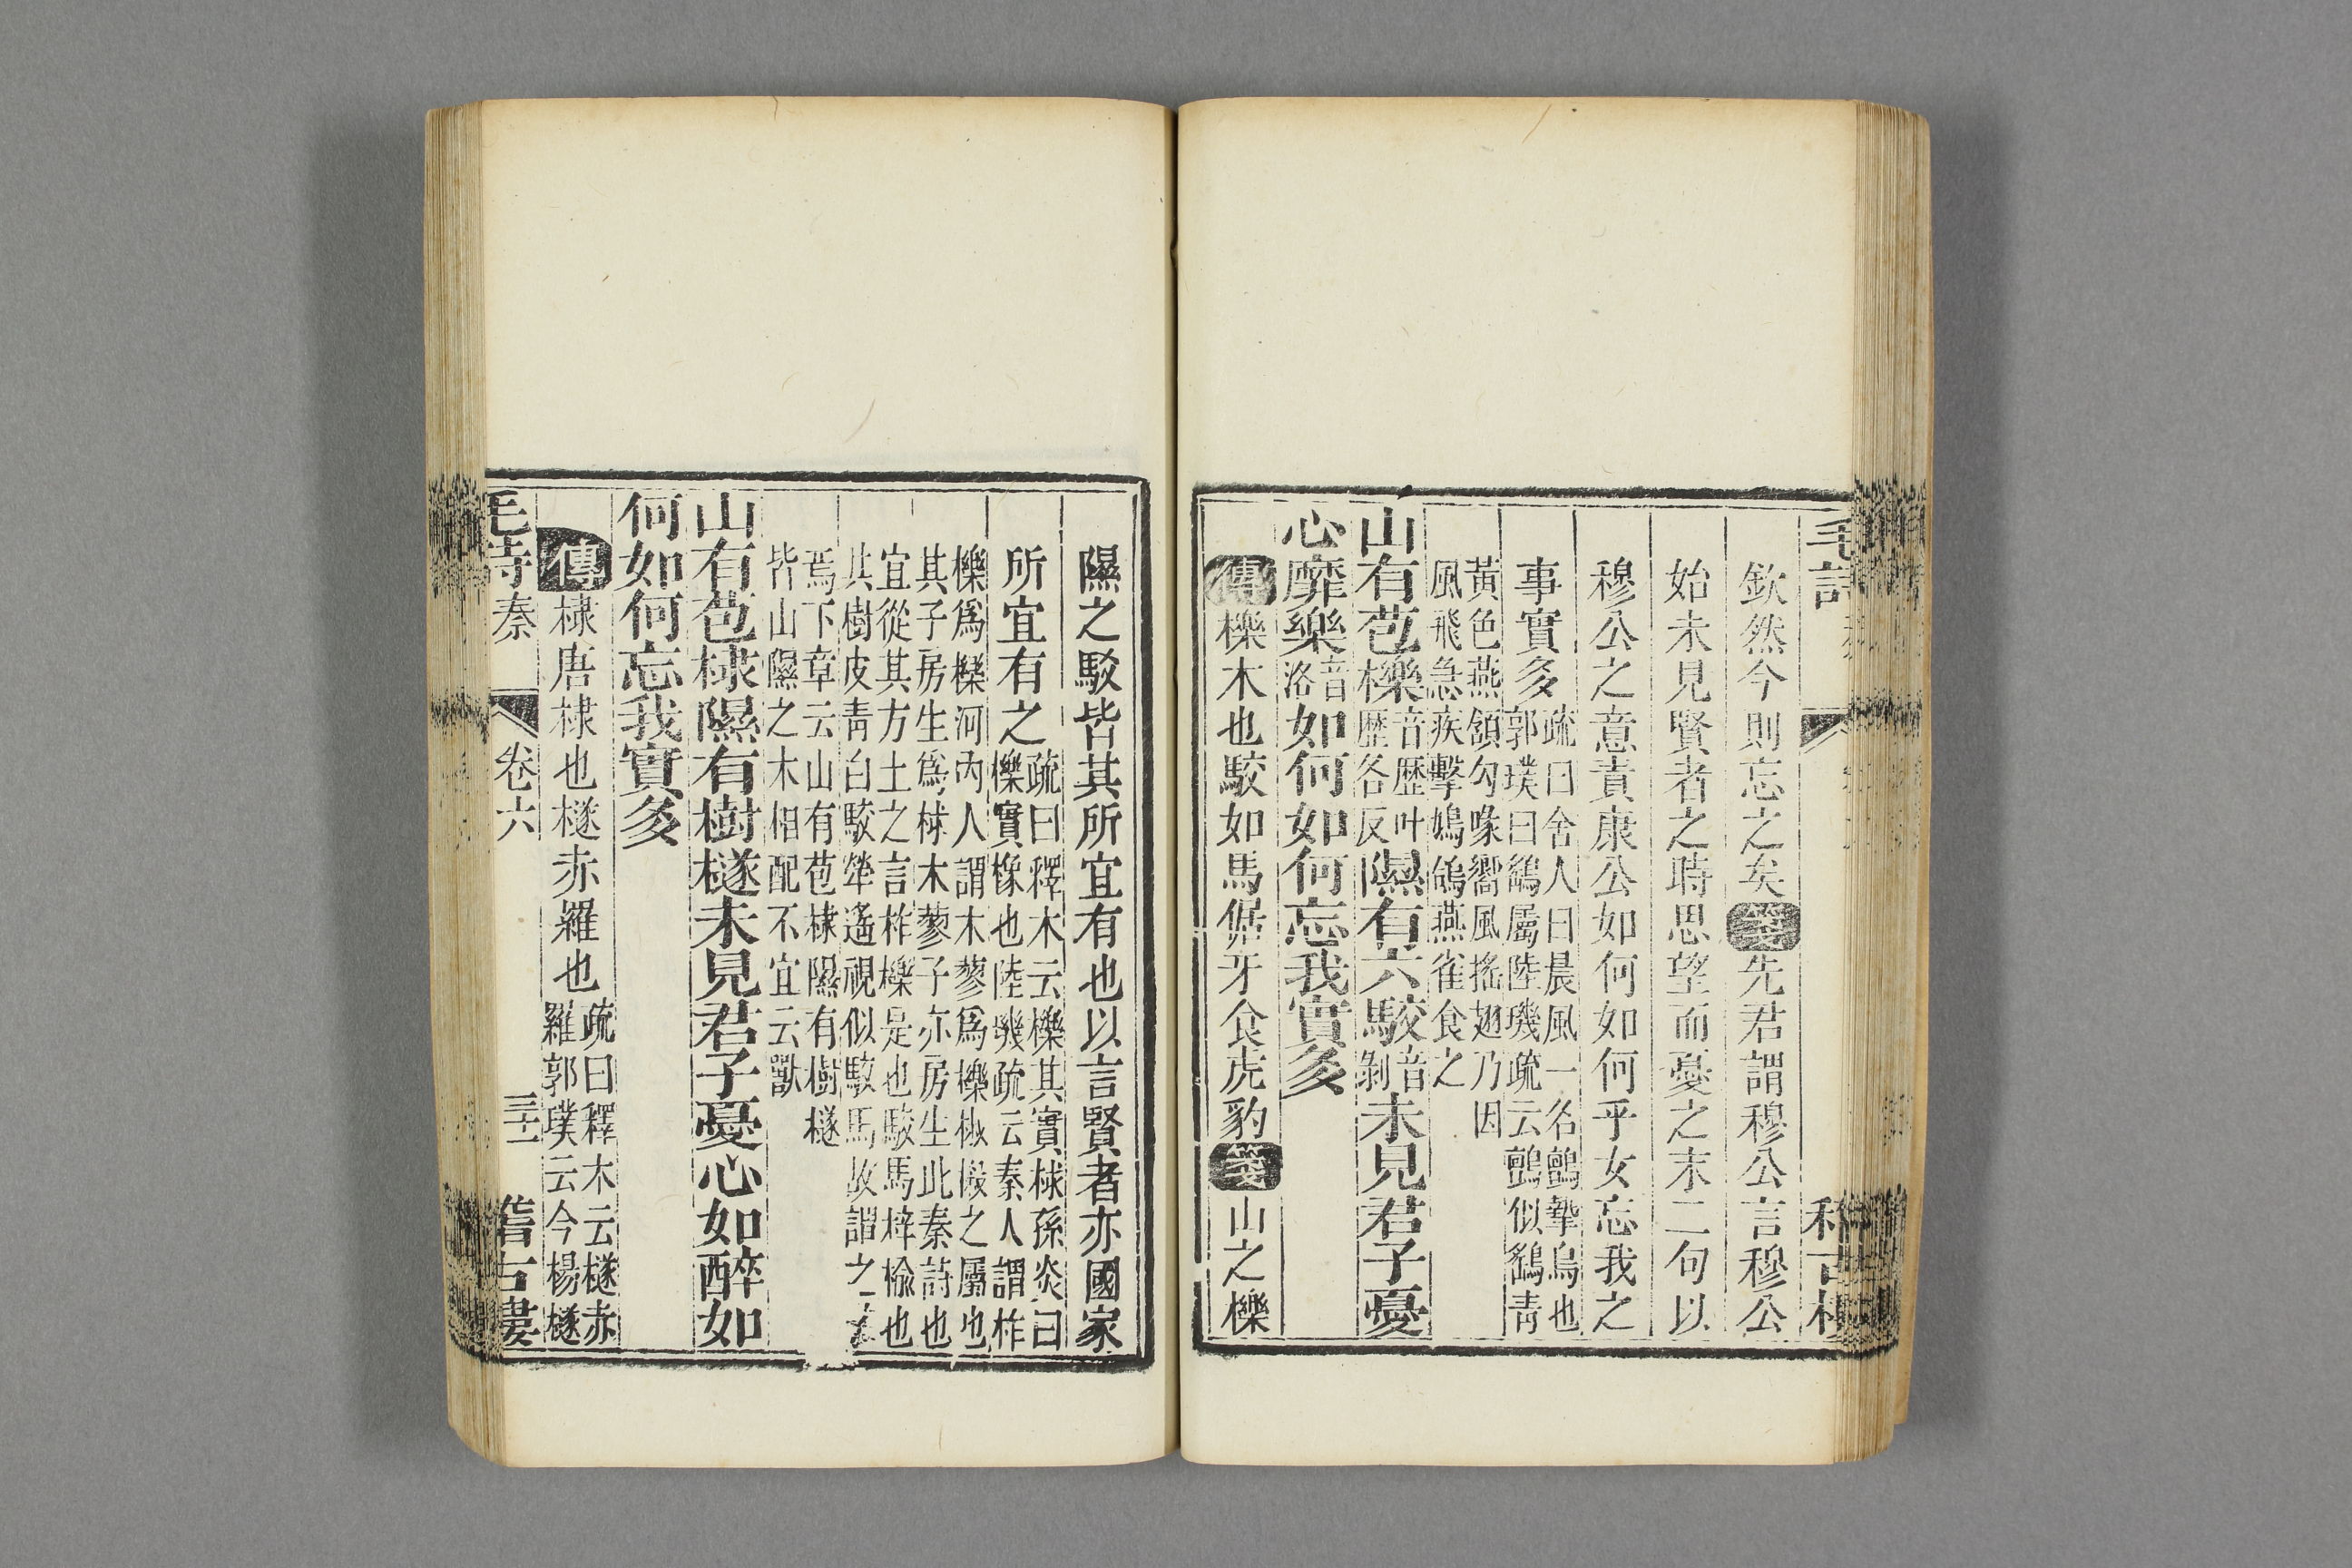 欽然今則忘之矣箋先君謂穆公言穆公
始未見賢者之時思望而憂之末二句以
穆公之意責康公如何如何乎女忘我之
事實多疏曰舍人曰晨風一名鸇摯鳥也
郭璞曰鷂屬陸璣疏云鸇似鷂青
黃色燕頷勾喙嚮風搖翅乃因
風飛急疾擊鳩鴿燕雀食之
山有苞櫟音歷叶歷各反隰有六駮音剝未見君子憂
心靡樂音洛如何如何忘我實多
傳櫟木也駮如馬倨牙食虎豹箋山之櫟
隰之駮皆其所宜有也以言賢者亦國家
所宜有之疏曰釋木云櫟其實梂孫炎曰
櫟實橡也陸璣疏云秦人謂柞
櫟爲櫟河內人謂木蓼爲櫟椒樧之屬也
其子房生爲梂木蓼子亦房生此秦詩也
宜從其方土之言柞櫟是也駮馬梓榆也
其樹皮青白駮犖遙視似駮馬故謂之
焉下章云山有苞棣隰有樹檖
皆山隰之木相配不宜云獸
山有苞棣隰有樹檖未見君子憂心如醉如
何如何忘我實多
傳棣唐棣也檖赤羅也疏曰釋木云檖赤
羅郭璞云今楊檖
毛詩秦 卷六 稽古樓